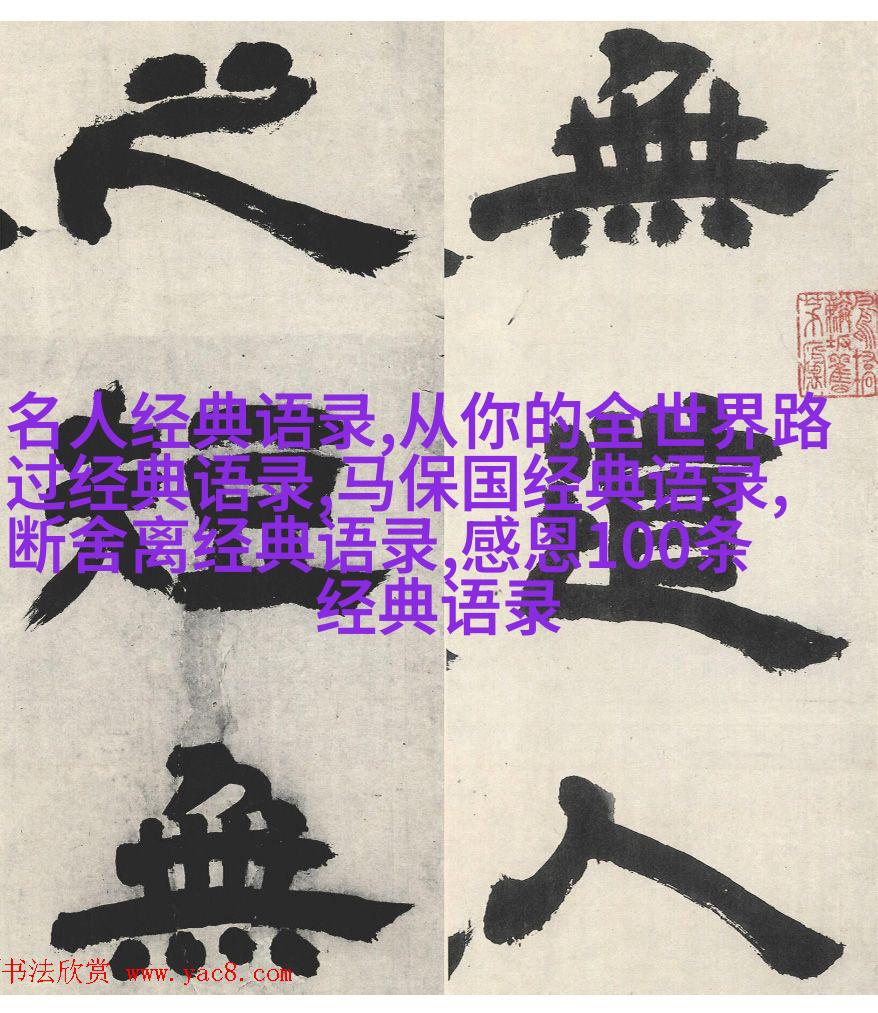 無道人
之短無
名人经典语录,从你的全世界路
过经典语录,马保国经典语录,
断舍离经典语录,感恩100条
经典语录
书法欣赏 www.yac8.com